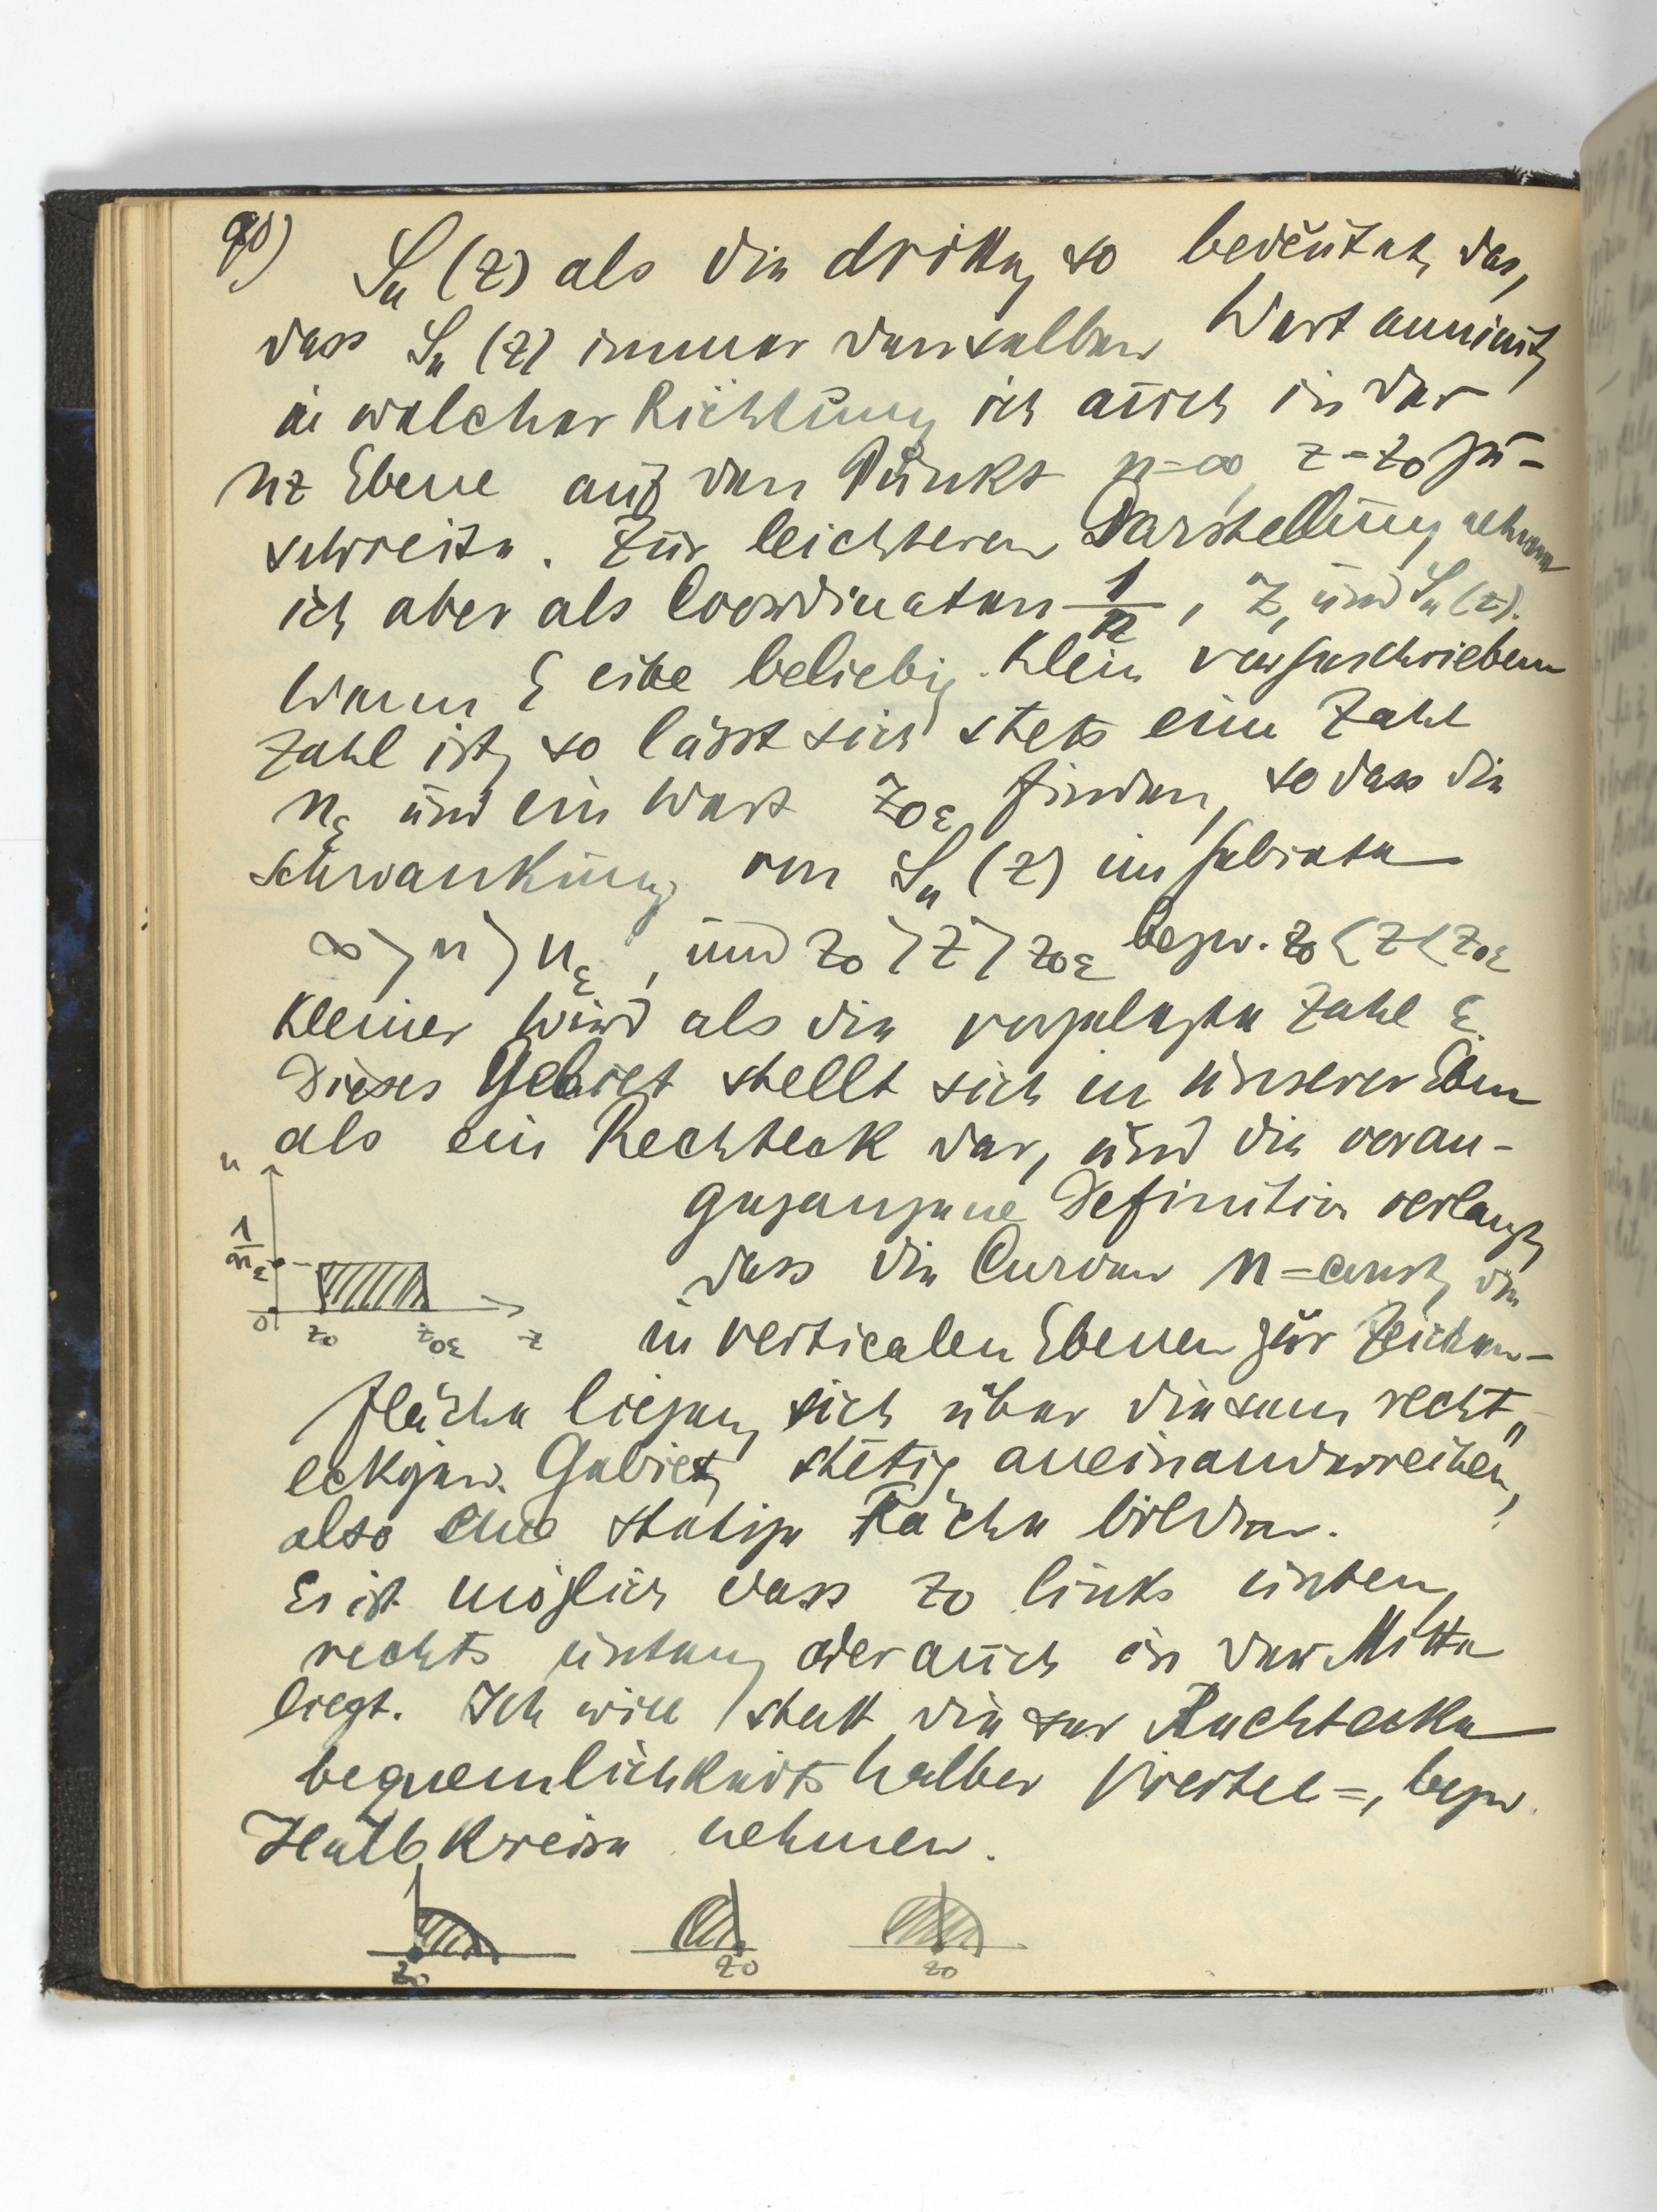 90) Sn (z) als die dritte, so bedeutet das,
dass Sn (z) immer denselben Wert annimmt,
in welcher Richtung ich auch in der
nz Ebene auf den Punkt n=∞, z=z0 zu-
schreite. Zur leichteren Darstellung nehme
ich aber als Coordinaten 1/n, z, und Sn (z).
Wenn ε eine beliebig klein vorgeschriebene
Zahl ist, so lässt sich stets eine Zahl
nε und ein Wert z0ε finden, so dass die
Schwankung von Sn (z) im Gebiete
∞ > n > nε, und z0 > z > z0ε bezw. z0 < z < z0ε
kleiner wird als die vorgelegte Zahl ε.
Dieses Gebiet stellt sich in unserer Ebene
als ein Rechteck dar, und die voran-
gegangene Definition verlangt,
dass die Curven n = const, die
in verticalen Ebenen zur Zeichen-
fläche liegen, sich über diesem recht„
eckigen Gebiet, stetig aneinanderreihen,
also eine stetige Fläche bilden.
Es ist möglich dass z0 links unten,
rechts unten, oder auch in der Mitte
liegt. Ich will statt dieser Rechtecke
bequemlichkeitshalber Viertel=, bezw.
Halbkreise nehmen.
n
1/nε
0 z0 z0ε z
z0 z0 z0